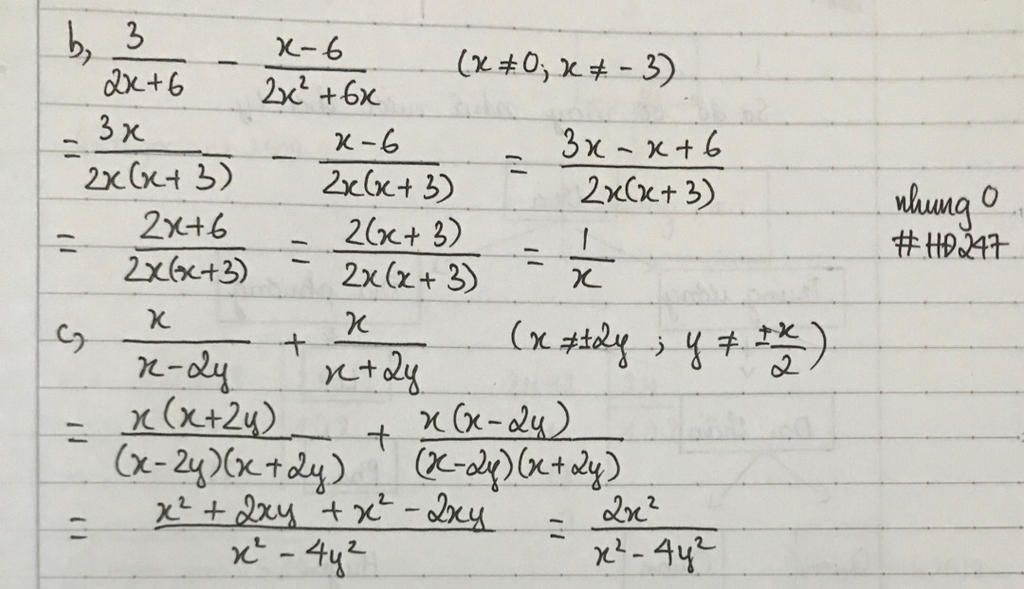 b, 3/(2x+6) - (x-6)/(2x² +6x) (x ≠ 0; x ≠ -3)
= 3x/(2x(x+3)) - (x-6)/(2x(x+3)) = (3x - x + 6)/(2x(x+3))
= (2x+6)/(2x(x+3)) = 2(x+3)/(2x(x+3)) = 1/x
nhung 0
#HĐ247
c, x/(x-2y) + x/(x+2y) (x ≠ ±2y ; y ≠ ±x/2)
= x(x+2y)/((x-2y)(x+2y)) + x(x-2y)/((x-2y)(x+2y))
= (x² + 2xy + x² - 2xy)/(x² - 4y²) = 2x²/(x² - 4y²)